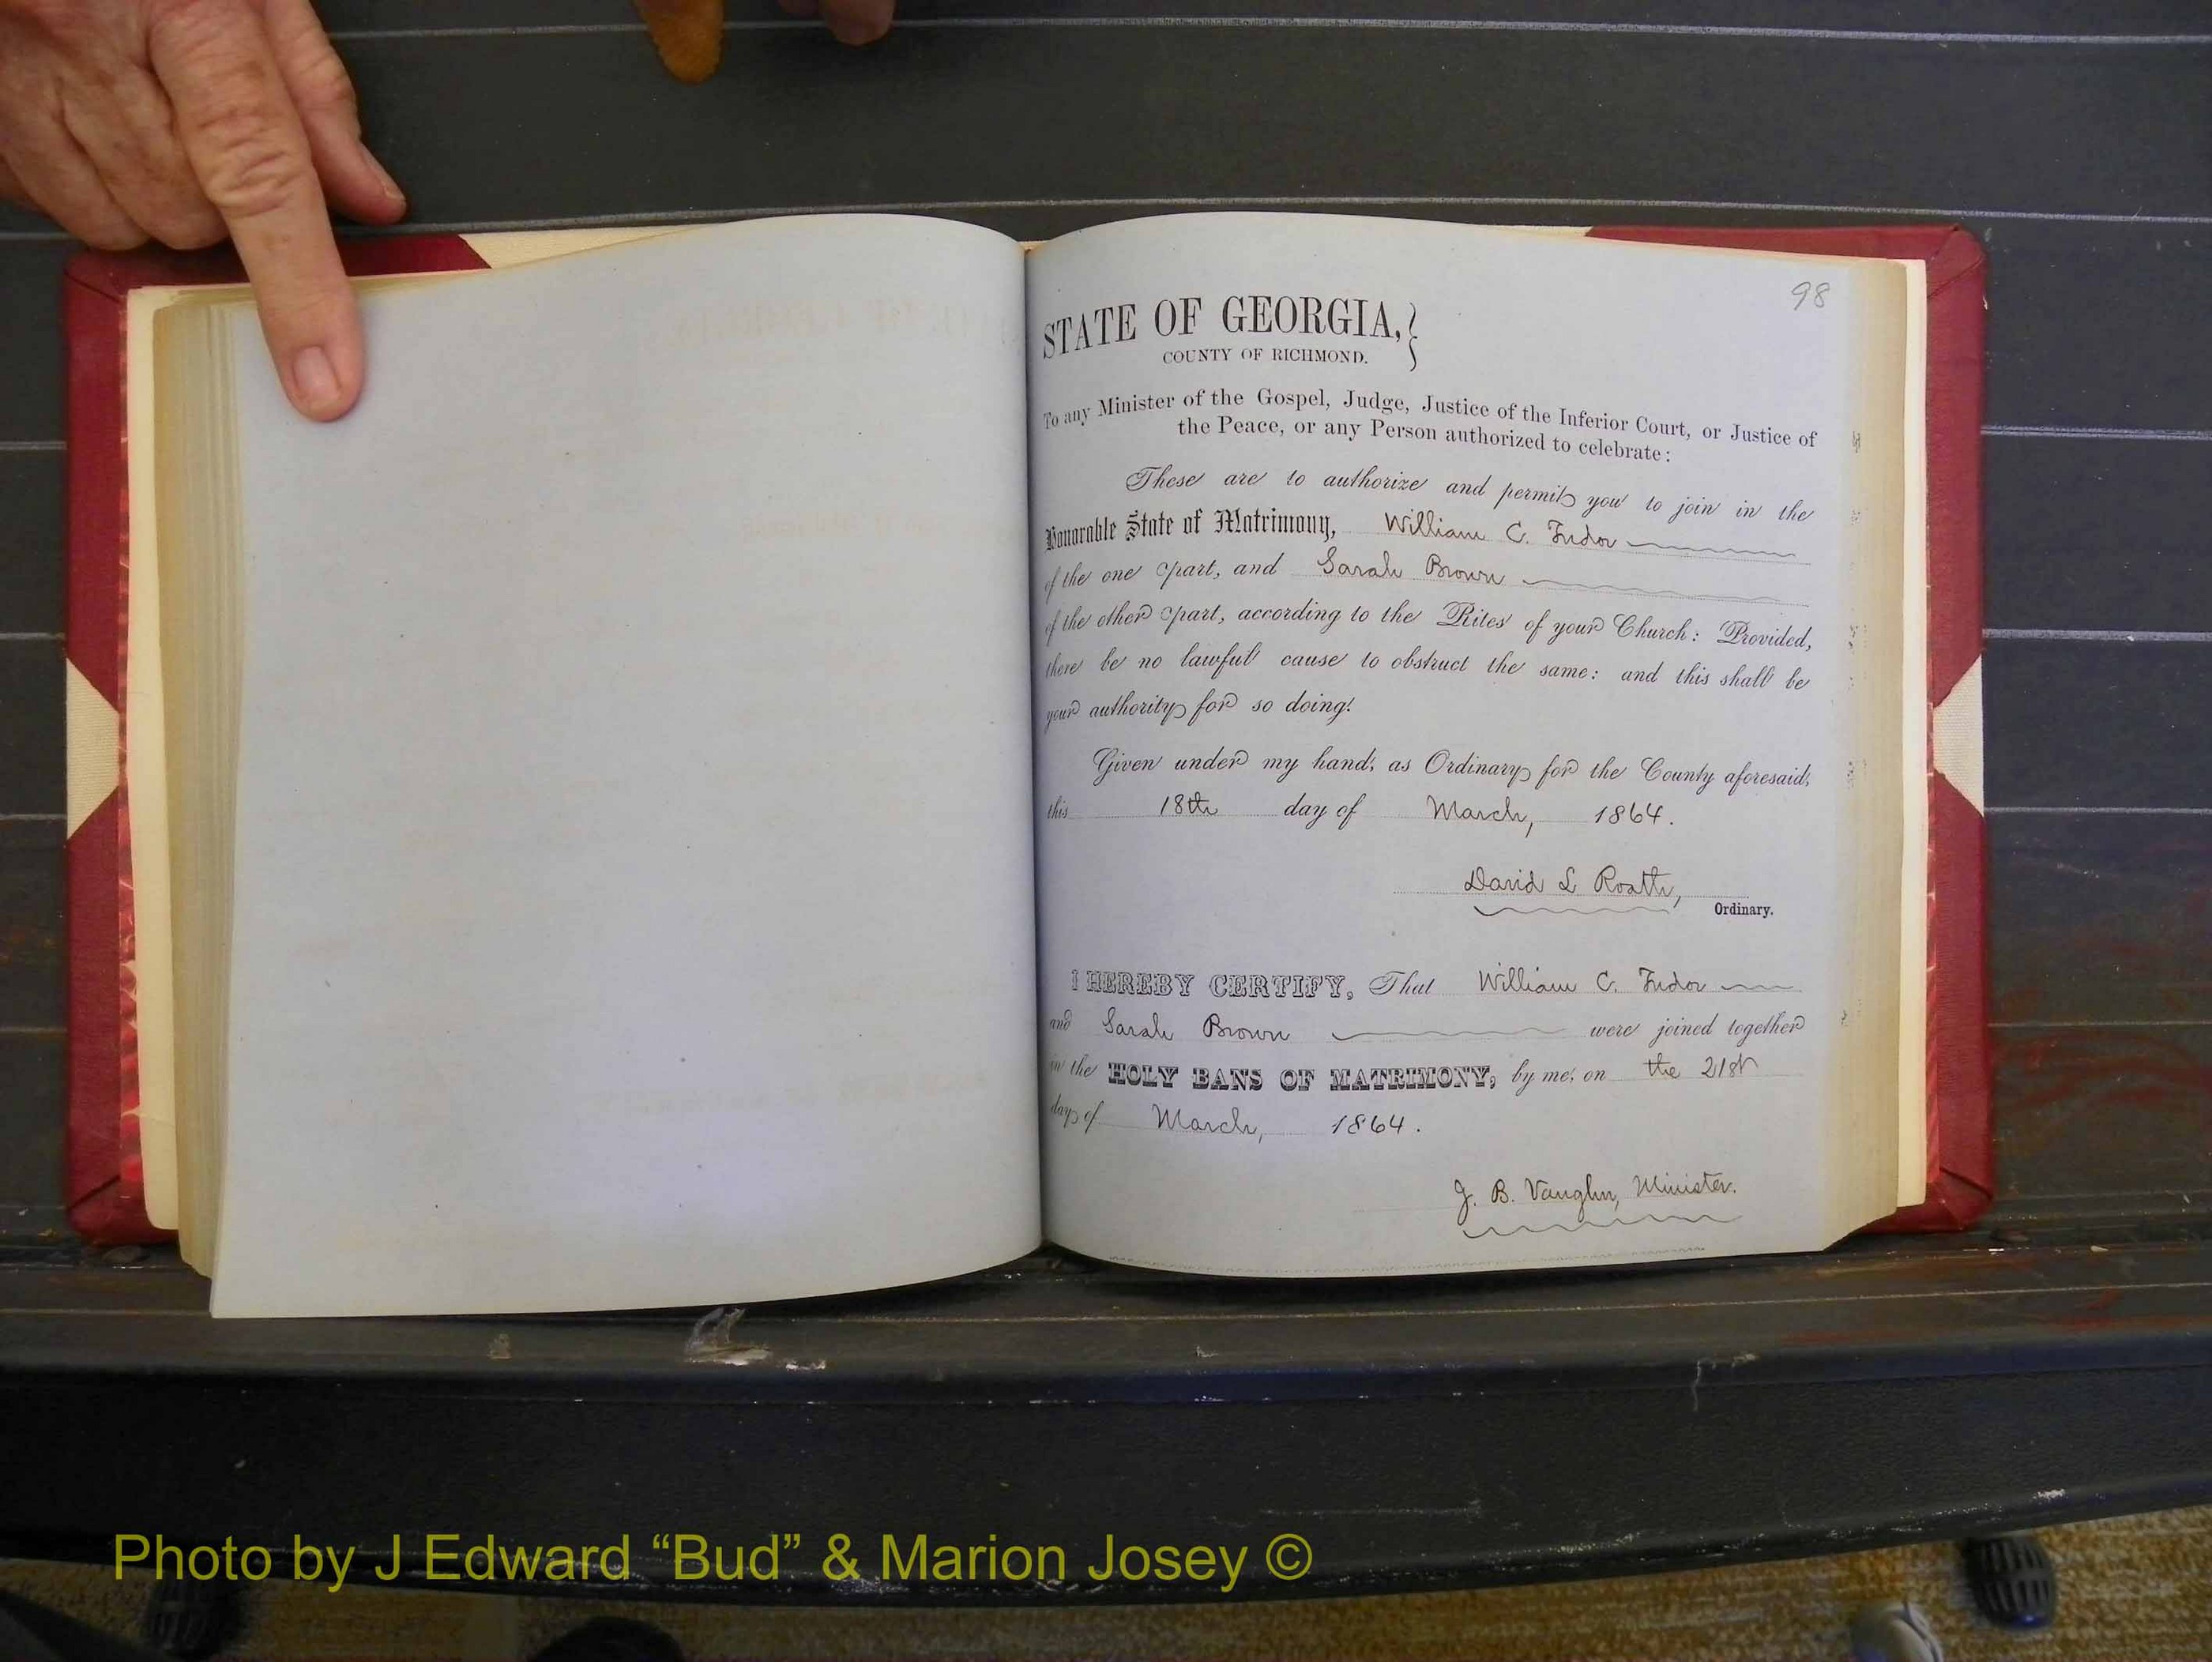 98
STATE OF GEORGIA,}
COUNTY OF RICHMOND.
To any Minister of the Gospel, Judge, Justice of the Inferior Court, or Justice of
the Peace, or any Person authorized to celebrate:
These are to authorize and permit you to join in the
Honorable State of Matrimony, William C. Tudor
of the one part, and Sarah Brown
of the other part, according to the Rites of your Church: Provided,
there be no lawful cause to obstruct the same: and this shall be
your authority for so doing.
Given under my hand, as Ordinary for the County aforesaid,
this 18th day of March, 1864.
David L Roath,
Ordinary.
I HEREBY CERTIFY, That William C. Tudor
and Sarah Brown were joined together
in the HOLY BANS OF MATRIMONY, by me, on the 21st
day of March, 1864.
J. B. Vaughn, Minister.
Photo by J Edward “Bud” & Marion Josey ©